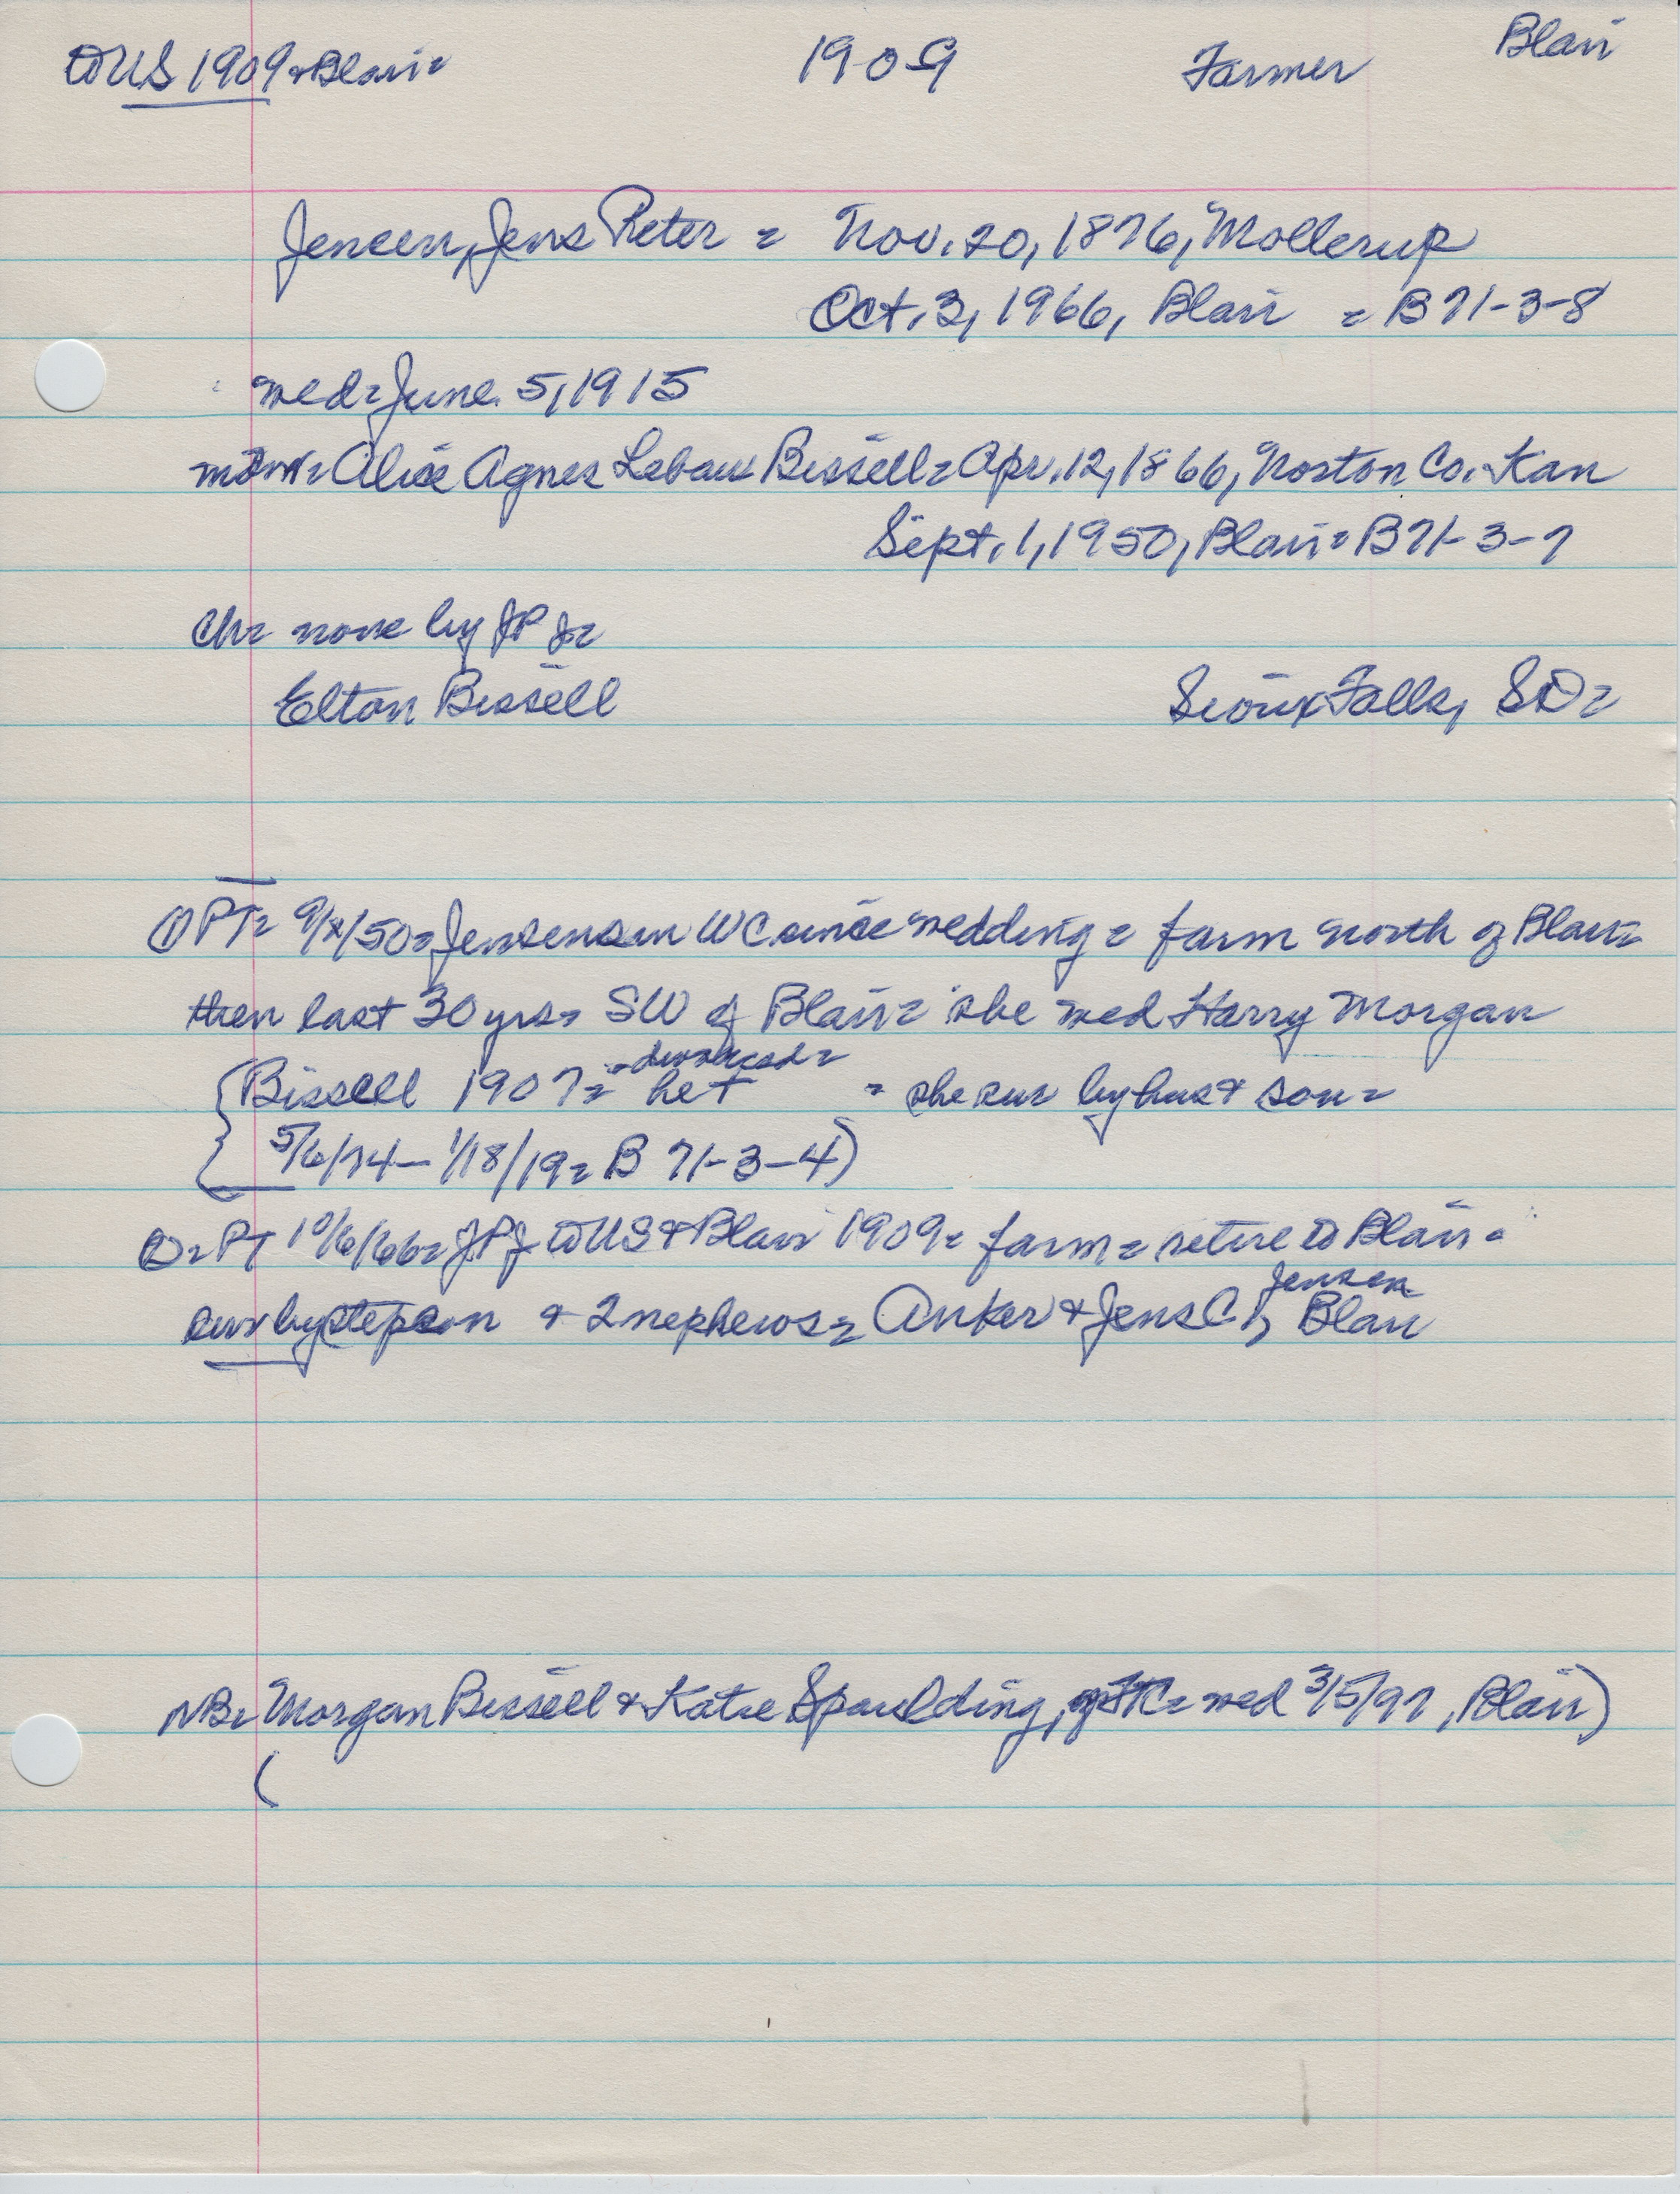 to US 1909 & Blair= 1909 Farmer Blair
Jensen, Jens Peter = Nov. 20, 1876, Mollerup
Oct. 3, 1966, Blair = B 71-3-8
wed= June 5, 1915
Alice Agnes Lebaw Bissell= Apr. 12, 1866, Norton Co. Kan
Sept. 1, 1950, Blair= B 71-3-7
Ch= none by JP J=
Elton Bissell Sioux Falls, SD=
① PT= 9/ /50= Jensens in WC since wedding= farm north of Blair=
then last 30 yrs= SW of Blair= she wed Harry Morgan
-divorced=
{Bissell 1907= het = she sur by hus & son=
5/6/74- 1/18/19= B 71-3-4)
②= PT 10/6/66= JPJ to US & Blair 1909= farm= retire to Blair=
Jensen
sur by stepson & 2 nephews= Anker & Jens C, Blair
NB= Morgan Bissell & Katie Spaulding, of wed 3/5/97, Blair)
(